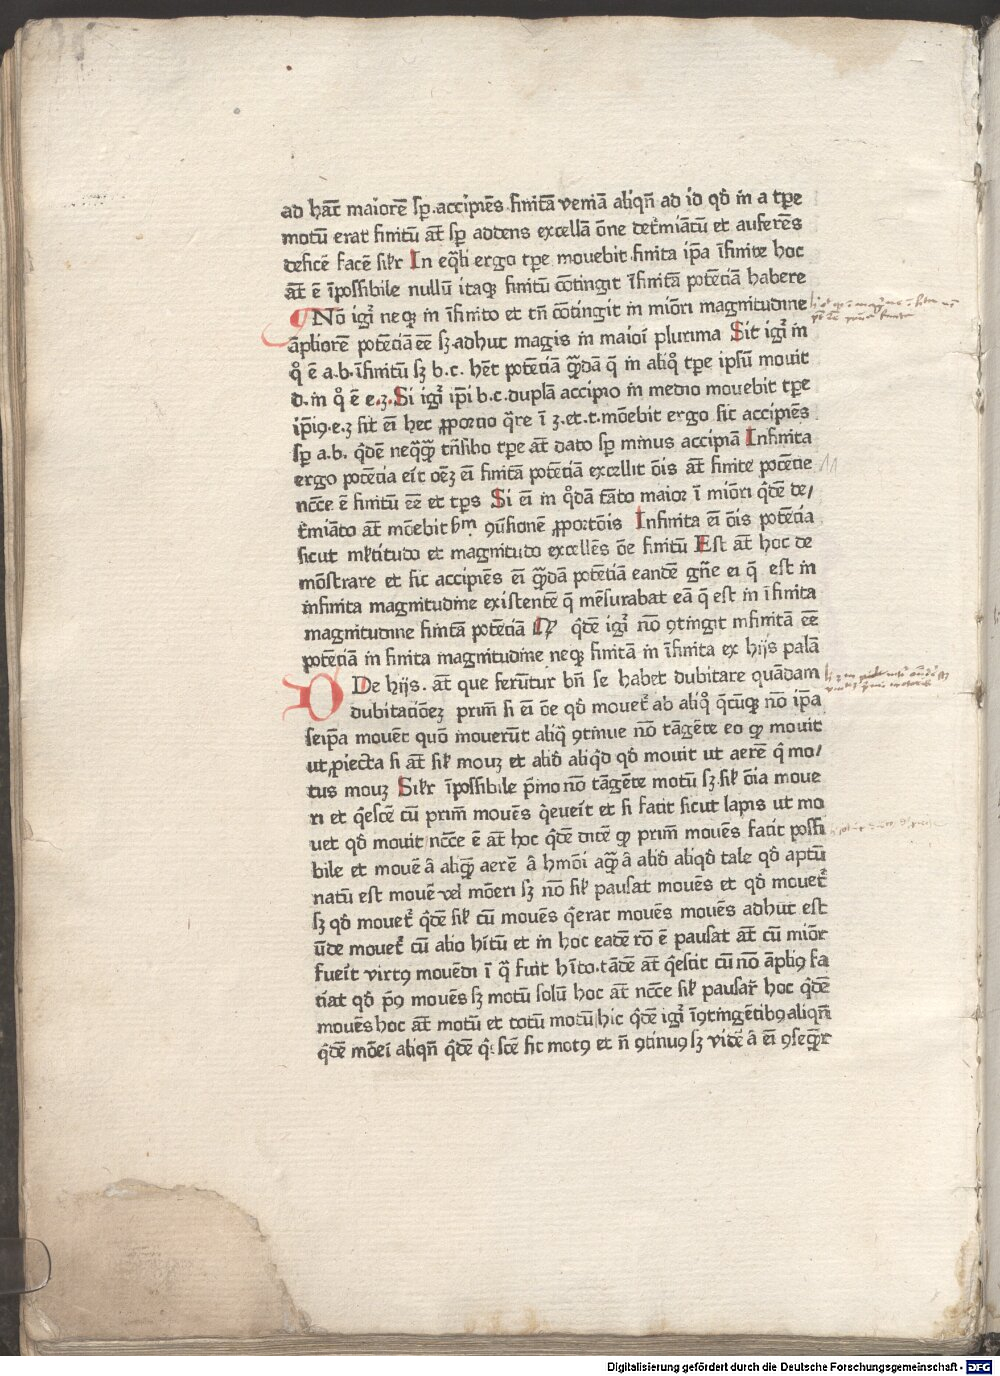 ad hāc maiorē sp̄ .accipiēs .finitā veniā aliqñ ad id qď in a tp̄e
motū erat finitū āt sp̄ addens excellā ōne det̉miātū et auferēs
deficē facē sil̉r In eq̄li ergo tp̄e movebit .finita ip̄a īfinite hoc
āt ē īpossibile nullū itaqꝫ finitū cōtingit īfinitā potētiā habere
Nō igỉ neqꝫ in īfinito et tn̄ cōtingit in miōri magnitudine
āpliorē potētiā ēē sꝫ adhuc magis in maiori plurima Sit igỉ in
q̊ ē a.b. īfinitū sꝫ b.c. hēt potētiā q̄dā q̄ in aliq̊ tp̄e ipsū movit
d. in q̊ ē e.ꝫ. Si igỉ ip̄i b.c. duplā accipio in medio movebit tp̄e
ip̄iꝯ .e.ꝫ sit eī hec ꝓportio q̄re ī ꝫ.et.t. mōebit ergo sic accipiēs
sp̄ a.b. q̇dē neq̄q̄ trāsibo tp̄e āt dato sp̄ minus accipiā Infinita
ergo potētia eīt oēꝫ eī finitā potētiā excellit ōis āt finite potētie
nc̄ce ē finitū ēē et tp̄s Si eī in q̊dā tāto maior ī miōri q̇dē de/
t̉miāto āt mōebit ẜm ꝯūsionē ꝓportōis Infinita eī ōis potētia
sicut ml̉titudo et magnitudo excellēs ōe finitū Est āt hoc de
mōstrare et sic accipiēs eī q̄dā potētiā eandē gn̄e ei q̄ est in
infinita magnitudine existentē q̄ mēsurabat eā q̄ est in īfinita
magnitudine finitā potētiā q̇dē igỉ nō ꝯtingit infinitā ēē
potētiā in finita magnitudine neqꝫ finitā in īfinita ex hijs palā
De hijs . āt que ferūtur bn̄ se habet dubitare quādam
dubitatiōeꝫ prim̄ si eī ōe qď mouet̉ ab aliq̊ q̄cūqꝫ nō ip̄a
seip̄a mouēt quō mouerūt aliq̄ ꝯtinue nō tāgēte eo qꝫ mouit
ut ꝓiecta si āt sil̉ mouꝫ et aliď aliq̇d qď mouit ut aerē q̇ mo/
tus mouꝫ Sil̉r īpossibile p̄mo nō tāgēte motū sꝫ sil̉ ōia moue
ri et q̇escē cū prim̄ mouēs q̇eueīt et si facit sicut lapis ut mo
uet qď mouit nc̄ce ē āt hoc q̇dē dicē qꝫ prim̄ mouēs facit possi
bile et mouē â aliq̄ aerē â hmōi aq̄ â aliď aliqď tale qď aptū
natū est mouē vel mōeri sꝫ nō sil̉ pausat mouēs et qď mouet̉
sꝫ qď mouet̉ q̇dē sil̉ cū mouēs q̇erat mouēs mouēs adhuc est
ūde mouet̉ cū alio hītū et in hoc eadē rō ē pausat āt cū miōr
fueīt virtꝯ mouēdi ī q̄ fuit hīto .tādē āt q̇escit cū nō āpliꝯ fa
tiat qď p̄ꝯ mouēs sꝫ motū solū hoc āt nc̄ce sil̉ pausar̄ hoc q̇dē
mouēs hoc āt motū et totū motū hic q̇dē igỉ īꝯtingētibꝯ aliqñ
q̇dē mōeī aliqñ q̇dē q̇escē sic motꝯ et n̄ ꝯtinuꝯ sꝫ vidē â eī ꝯseq̄r
Digitalisierung gefördert durch die Deutsche Forschungsgemeinschaft - DFG